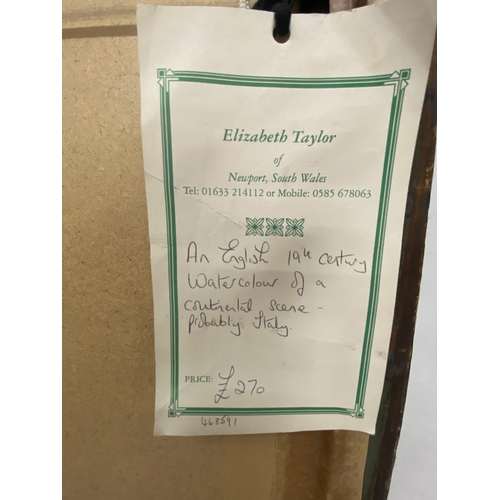 Elizabeth Taylor
of
Newport, South Wales
Tel: 01633 214112 or Mobile: 0585 678063
An English 19th century
Watercolour of a
continental scene -
probably Italy.
PRICE: £270
468591